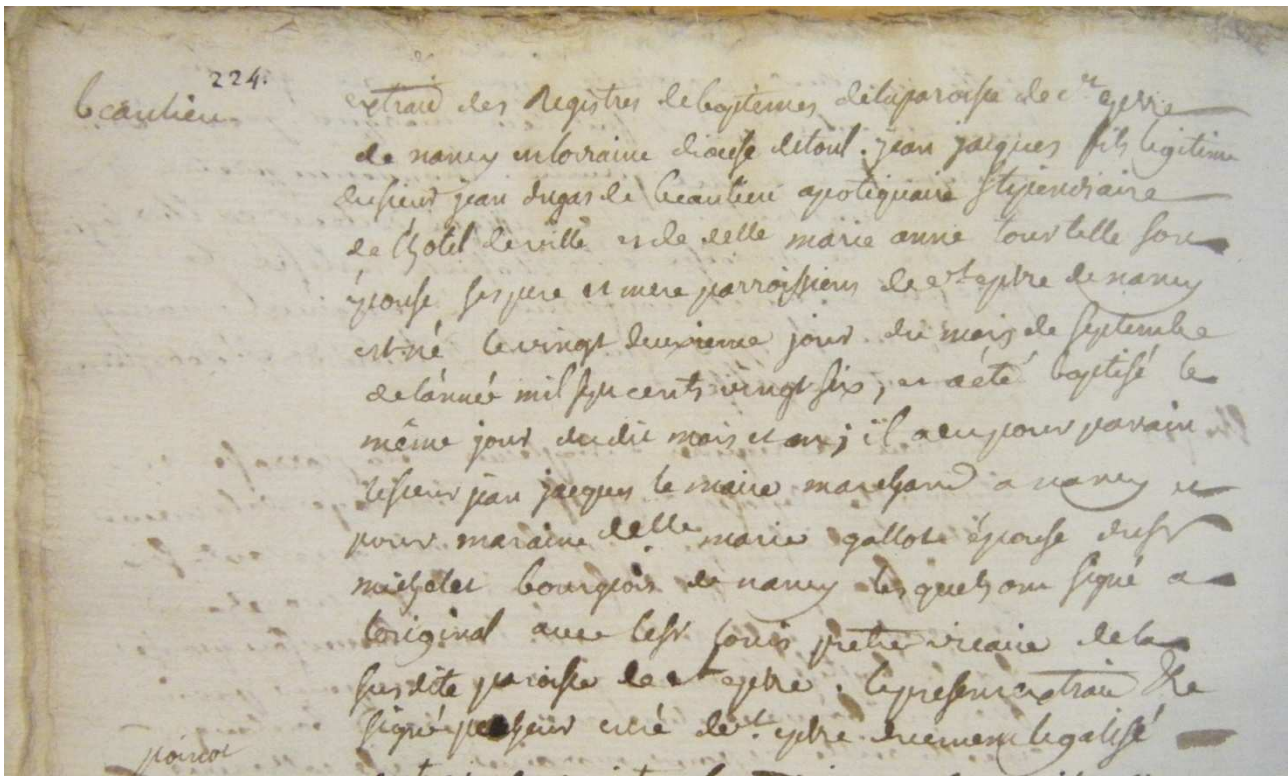 224.
beaulieu
extrait des Registres de baptemes de la paroisse de st epvre
de nancy en lorraine diocese de toul. jean jacques fils legitime
du sieur jean dugas de beaulieu apotiquaire stipendiaire
de l'hotel de ville et de delle marie anne tourtelle son
épouse ses pere et mere parroissiens de st epvre de nancy
est né le vingt deuxieme jour du mois de septembre
de l'année mil sept cents vingt six, et a été baptisé le
même jour du dit mois et an; il a eu pour parain
le sieur jean jacques le maire marchand a nancy et
pour maraine delle marie gallot épouse du sr
michelet bourgeois de nancy les quels ont signé a
l'original avec le sr pretre vicaire de la
susdite paroisse de st epvre. le present extrait
signé curé de st epvre duement legalisé
poirot